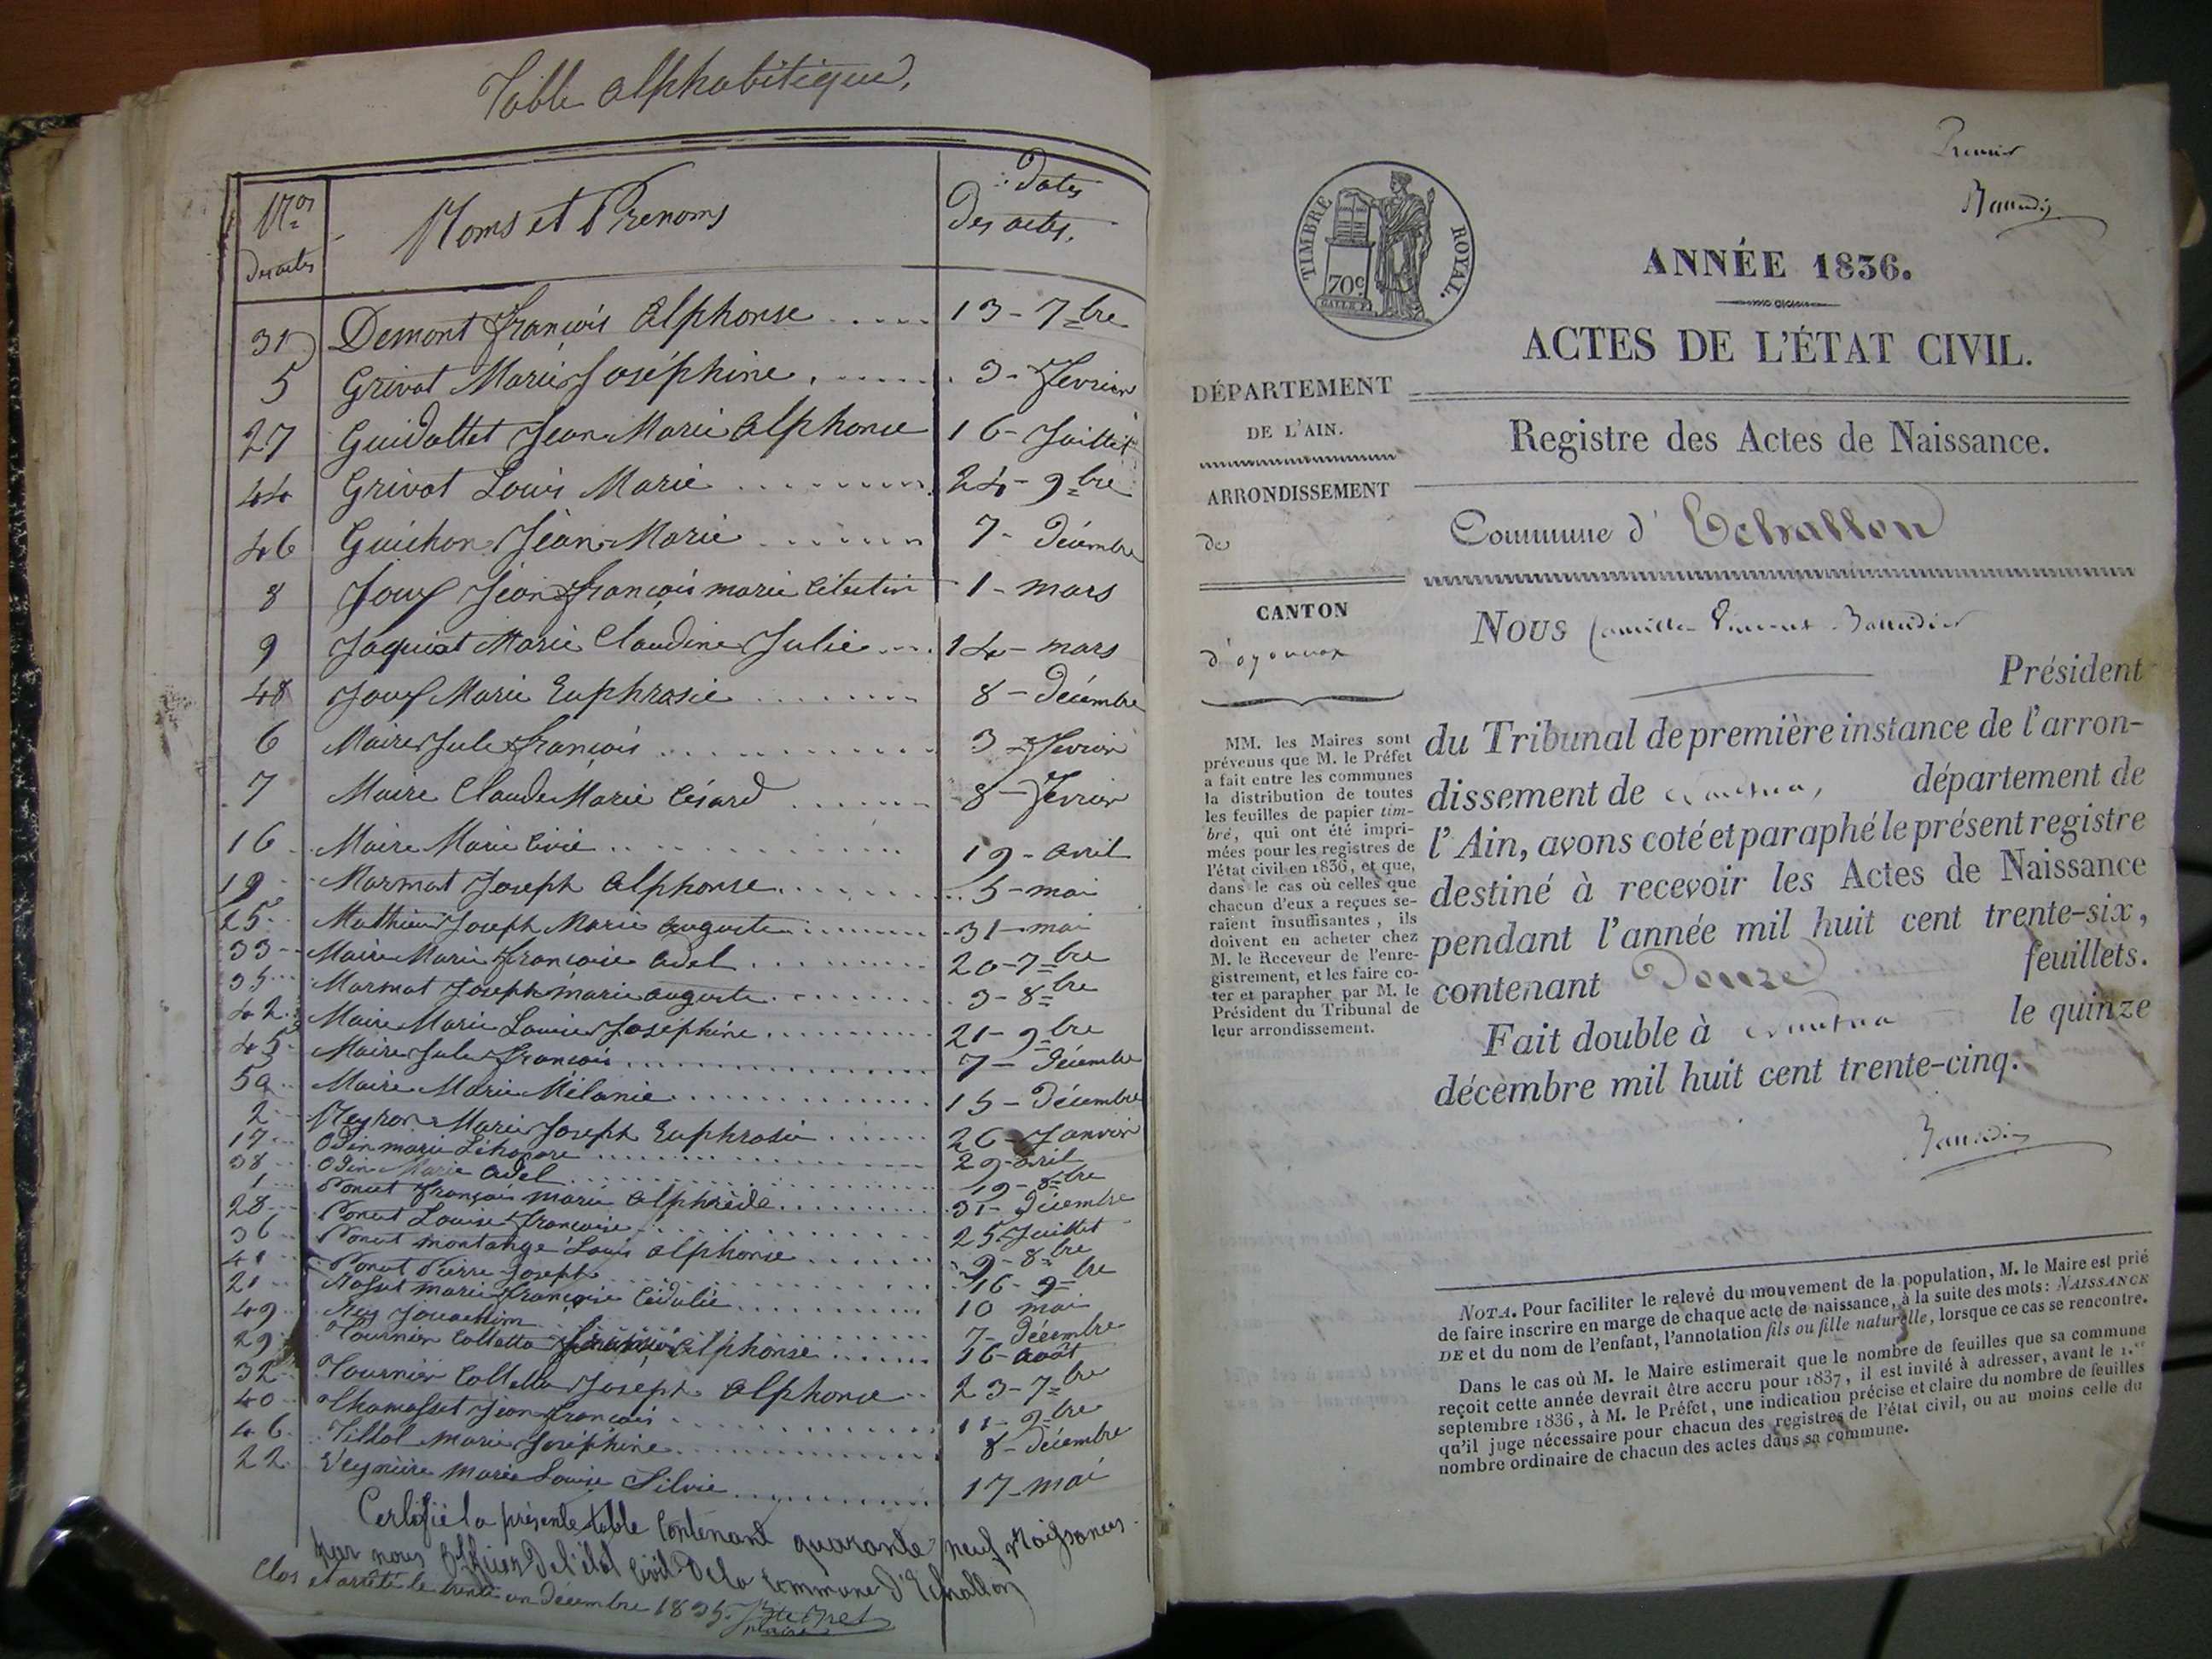 Table alphabétique.
Nos des actes
Noms et Prenoms
Dates des actes.
31 Demont François Alphonse 13 - 7bre
5 Grivat Marie Joséphine 3 - Fevrier
27 Guidattet Jean Marie Alphonse 16 - Juillet
44 Grivat Louis Marie 24 - 9bre
46 Guichon Jean Marie 7 - Décembre
8 Jouf Jean François marie 1 - mars
9 Jaquiot Marie Claudine Julie 14 - mars
48 Jouf Marie Euphrasie 8 - Décembre
6 Maire Jule François 3 - Fevrier
7 Maire Claude Marie Césard 8 - Fevrier
16 Maire Marie 19 - avril
19 Marmat Joseph Alphonse 5 - mai
25 Mathieu Joseph Marie Auguste 31 - mai
33 Maire Marie Françoise Adel 20 - 7bre
35 Marmat Joseph marie auguste 3 - 8bre
42 Maire Marie Louise Joséphine 21 - 9bre
45 Maire Jule François 7 - Décembre
50 Maire Marie Mélanie 15 - Décembre
2 Neyron Marie Joseph Euphrasie 26 - Janvier
17 Odin marie 29 - avril
38 Odin Marie Adel 19 - 8bre
1 Poncet François marie Alphrède 31 - Décembre
28 Poncet Louise Françoise 25 Juillet
36 Poncet montange Louis Alphonse 9 - 8bre
41 Poncet Pierre Joseph 16 - 9bre
21 marie Françoise 10 mai
49 Rey Jouachim 7 - Décembre
29 Tournier Colletta Alphonse 16 - août
32 Tournier Colletta Joseph Alphonse 23 - 7bre
40 Thomasset Jean François 11 - 9bre
46 Tillol Marie Joséphine 8 - Décembre
22 Veyniere Marie Louise Silvie 17 - mai
Certifié la présente table Contenant quarante neuf Naissances
par nous officier De l'état Civil De la Commune D'Echallon
Clos et arrêté le trente un Décembre 1835.
Premier
Baudin
TIMBRE ROYAL.
70c
ANNÉE 1836.
ACTES DE L'ÉTAT CIVIL.
DÉPARTEMENT
DE L'AIN.
Registre des Actes de Naissance.
ARRONDISSEMENT
de
Commune d' Echallon
CANTON
d'oyonnax
Nous Camille Vincent
Président
du Tribunal de première instance de l'arron-
dissement de nantua, département de
l'Ain, avons coté et paraphé le présent registre
destiné à recevoir les Actes de Naissance
pendant l'année mil huit cent trente-six,
contenant Douze feuillets.
Fait double à nantua le quinze
décembre mil huit cent trente-cinq.
MM. les Maires sont
prévenus que M. le Préfet
a fait entre les communes
la distribution de toutes
les feuilles de papier tim-
bré, qui ont été impri-
mées pour les registres de
l'état civil en 1836, et que,
dans le cas où celles que
chacun d'eux a reçues se-
raient insuffisantes, ils
doivent en acheter chez
M. le Receveur de l'enre-
gistrement, et les faire co-
ter et parapher par M. le
Président du Tribunal de
leur arrondissement.
NOTA. Pour faciliter le relevé du mouvement de la population, M. le Maire est prié
de faire inscrire en marge de chaque acte de naissance, à la suite des mots: NAISSANCE
DE et du nom de l'enfant, l'annotation fils ou fille naturelle, lorsque ce cas se rencontre.
Dans le cas où M. le Maire estimerait que le nombre de feuilles que sa commune
reçoit cette année devrait être accru pour 1837, il est invité à adresser, avant le 1.er
septembre 1836, à M. le Préfet, une indication précise et claire du nombre de feuilles
qu'il juge nécessaire pour chacun des registres de l'état civil, ou au moins celle du
nombre ordinaire de chacun des actes dans sa commune.